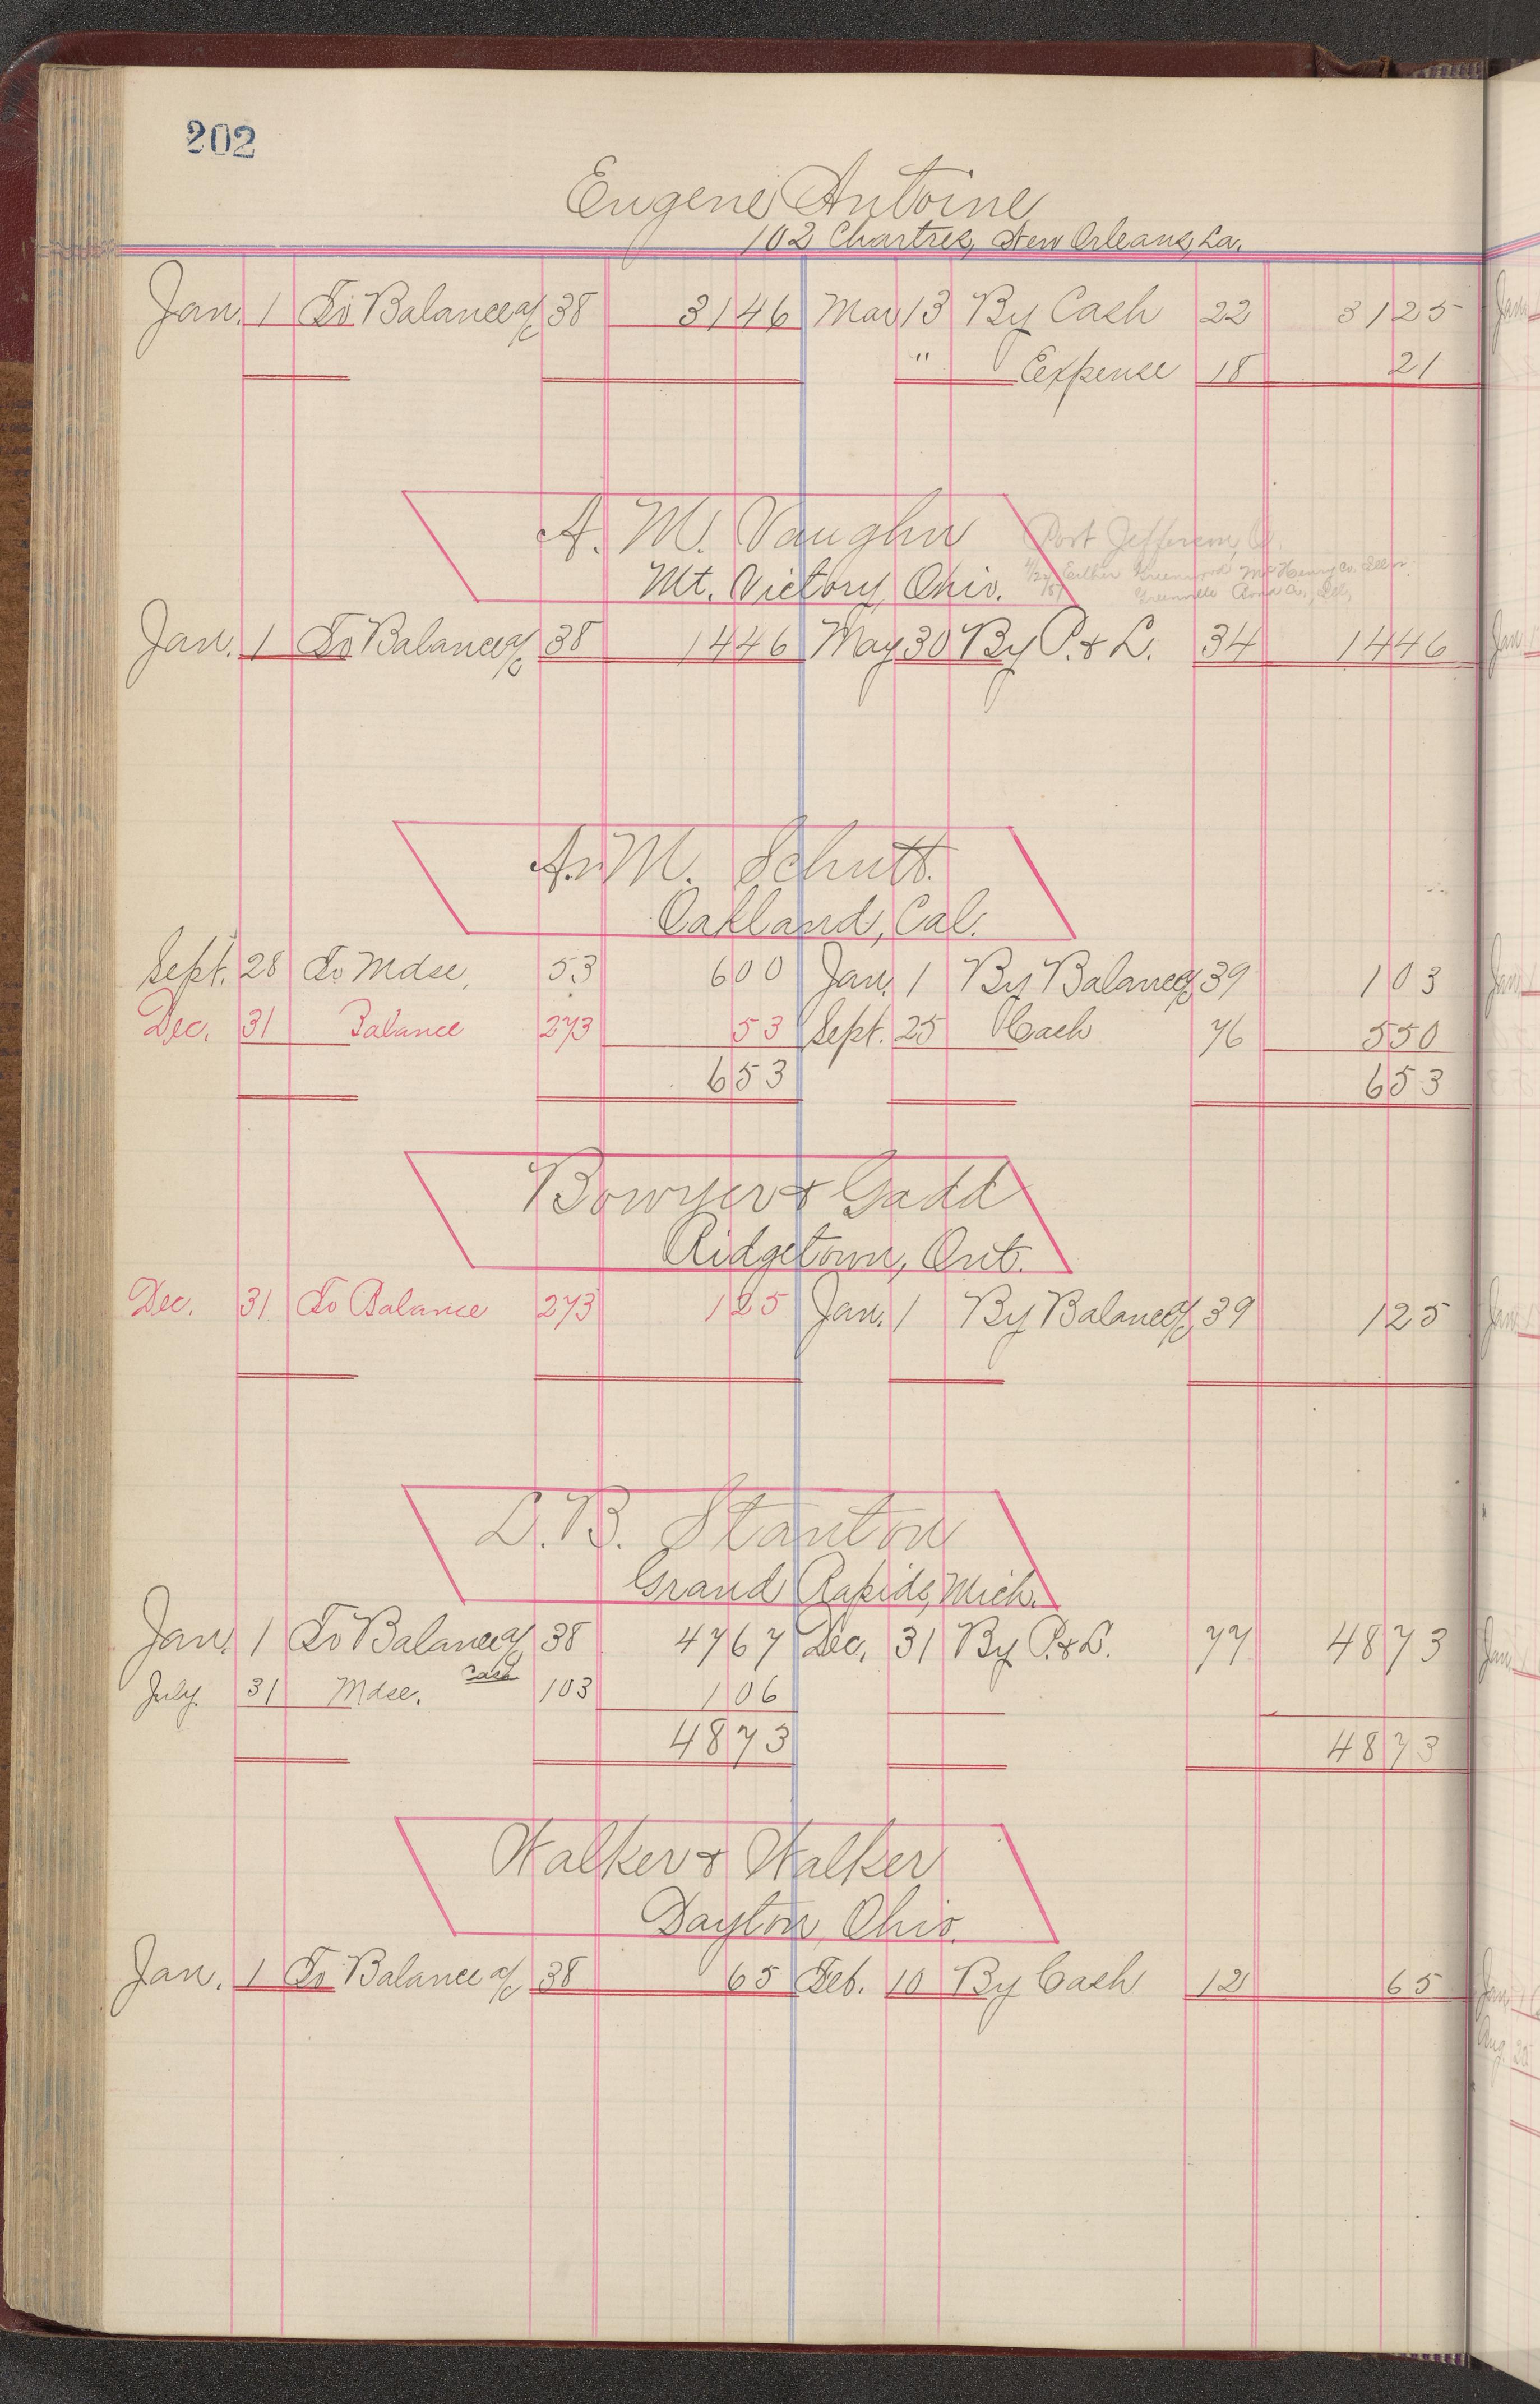 202
Eugene Antoine
102 Chartres, New Orleans, La.
Jan. 1 To Balance a/c 38 31 46 Mar 13 By Cash 22 31 25
" Expense 18 21
A. M. Vaughn
Port Jefferson, O.
Mt. Victory, Ohio.
Either Greenwood McHenry Co. Ills.
Greenville Bond Co., Ill.
Jan. 1 To Balance a/c 38 14 46 May 30 By P. & L. 34 14 46
A. M. Schutt.
Oakland, Cal.
Sept. 28 To Mdse. 53 6 00 Jan. 1 By Balance a/c 39 1 03
Dec. 31 Balance 273 53 Sept. 25 Cash 76 5 50
6 53 6 53
Bowyer & Gadd
Ridgetown, Ont.
Dec. 31 To Balance 273 1 25 Jan. 1 By Balance a/c 39 1 25
L. B. Stanton
Grand Rapids, Mich.
Jan. 1 To Balance a/c 38 47 67 Dec. 31 By P. & L. 77 48 73
July 31 Mdse. Cash 103 1 06
48 73 48 73
Walker & Walker
Dayton, Ohio.
Jan. 1 To Balance a/c 38 65 Feb. 10 By Cash 12 65